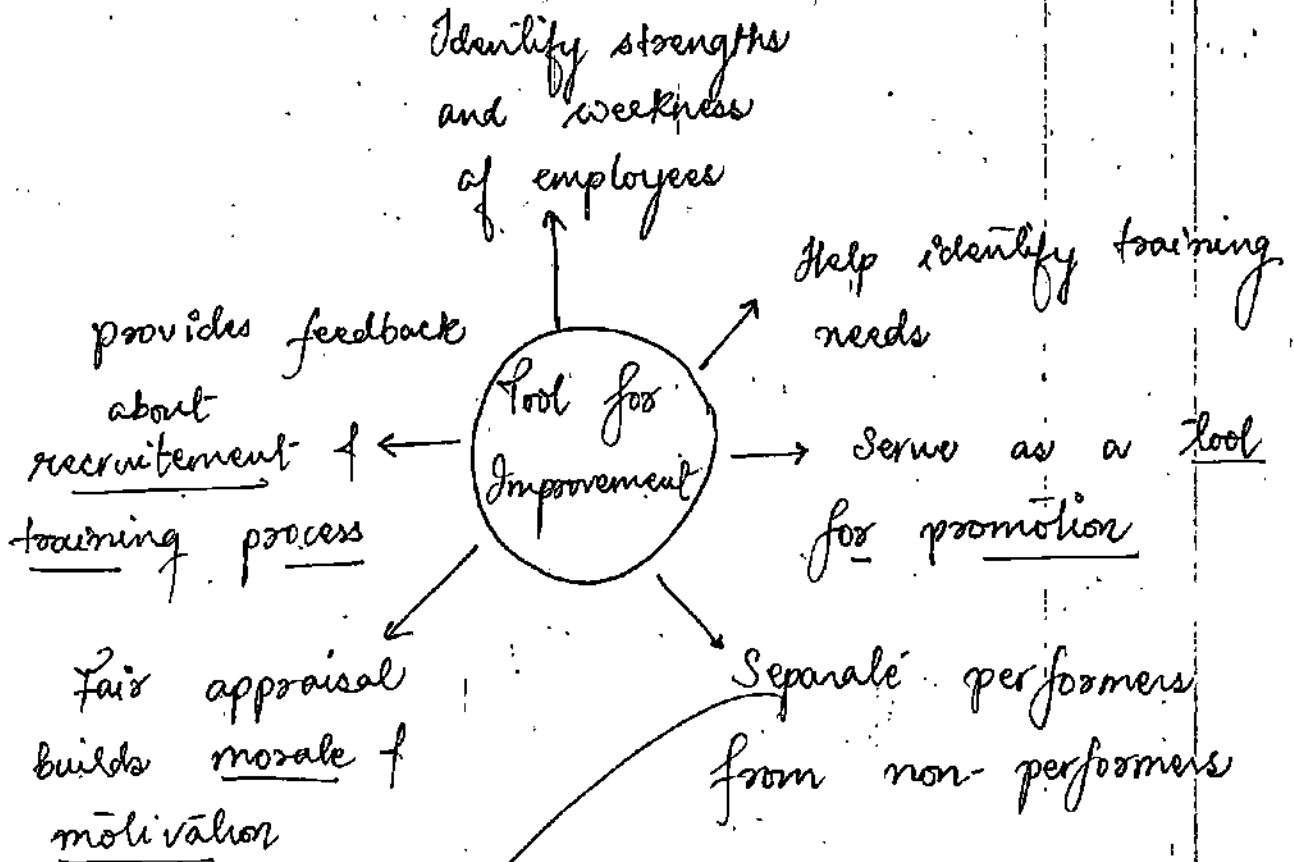 Identify strengths
and weekness
of employees
Help identify training
needs
provides feedback
about
recruitement &
training process
Tool for
Improvement
Serve as a tool
for promotion
Fair appraisal
builds morale &
motivation
Separate performers
from non-performers